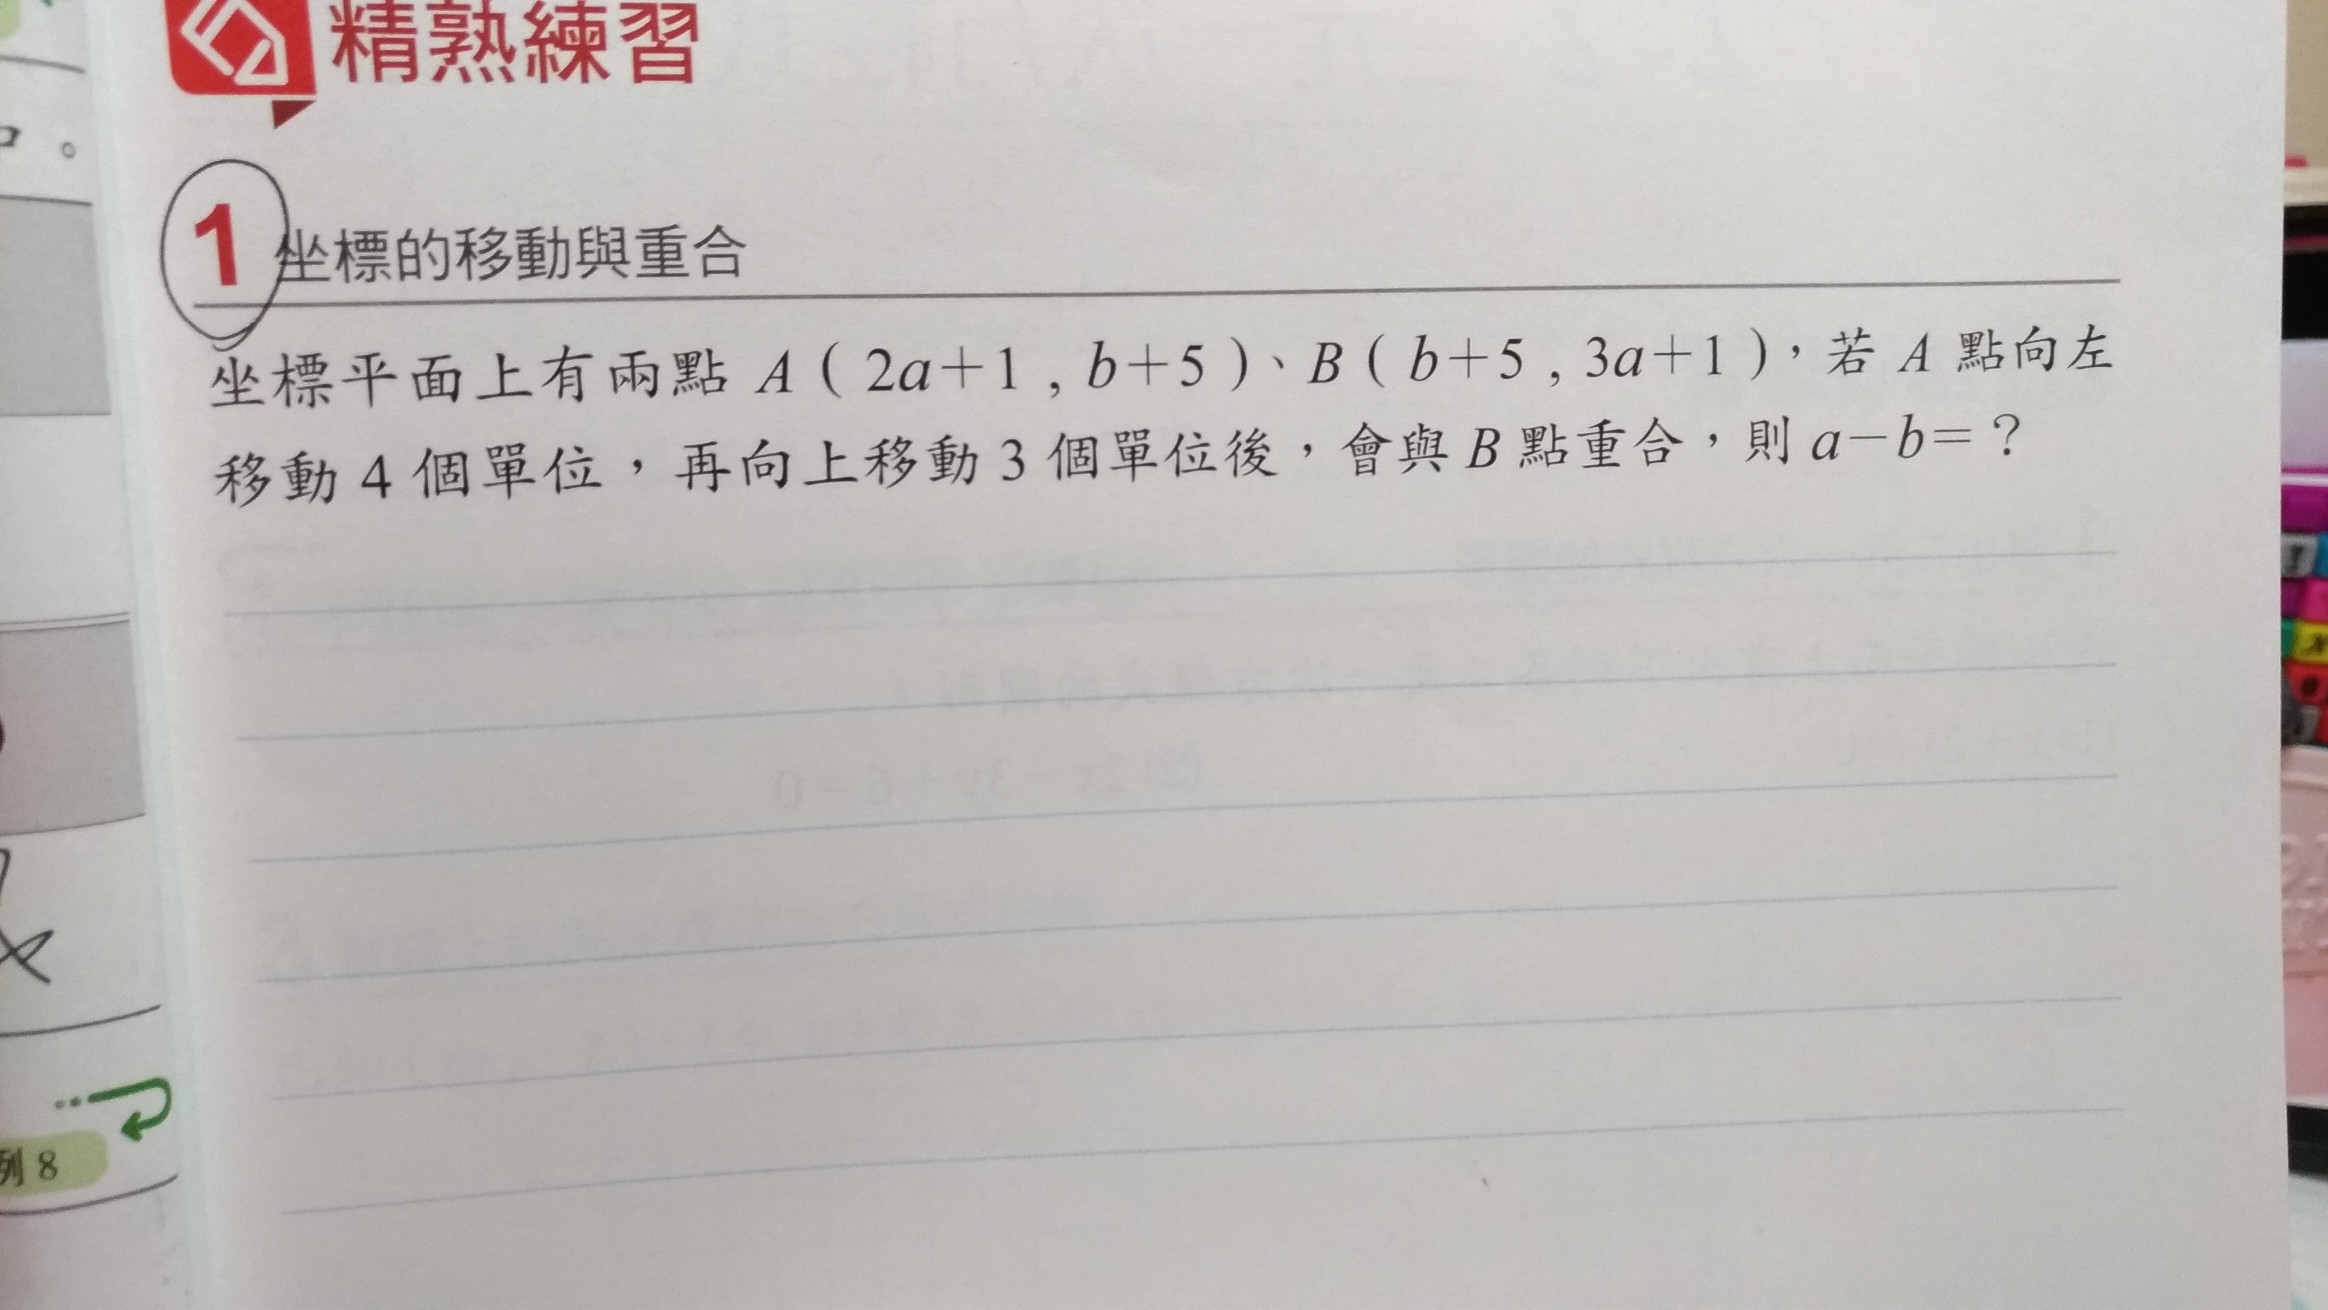 精熟練習
。
1 坐標的移動與重合
坐標平面上有兩點 A ( 2a+1 , b+5 )、B ( b+5 , 3a+1 ),若 A 點向左
移動 4 個單位,再向上移動 3 個單位後,會與 B 點重合,則 a-b=?
列 8